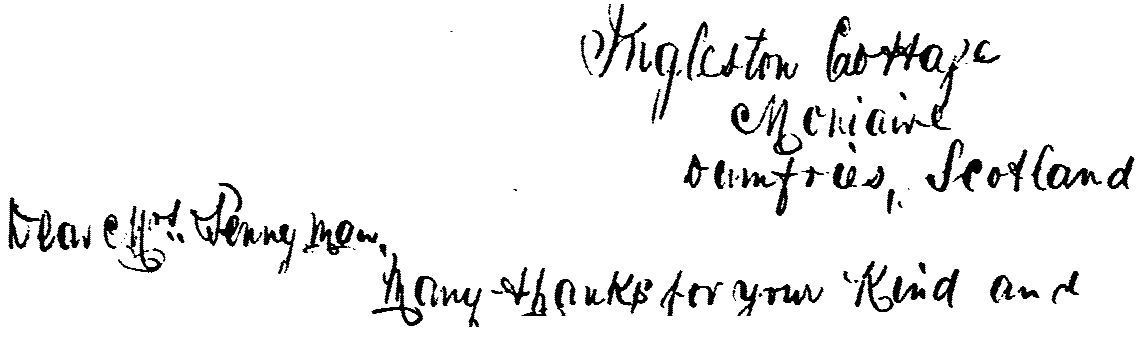 Ingleston Cottage
Moniaive
Dumfries, Scotland
Dear Mrs. Pennyman,
Many thanks for your Kind and